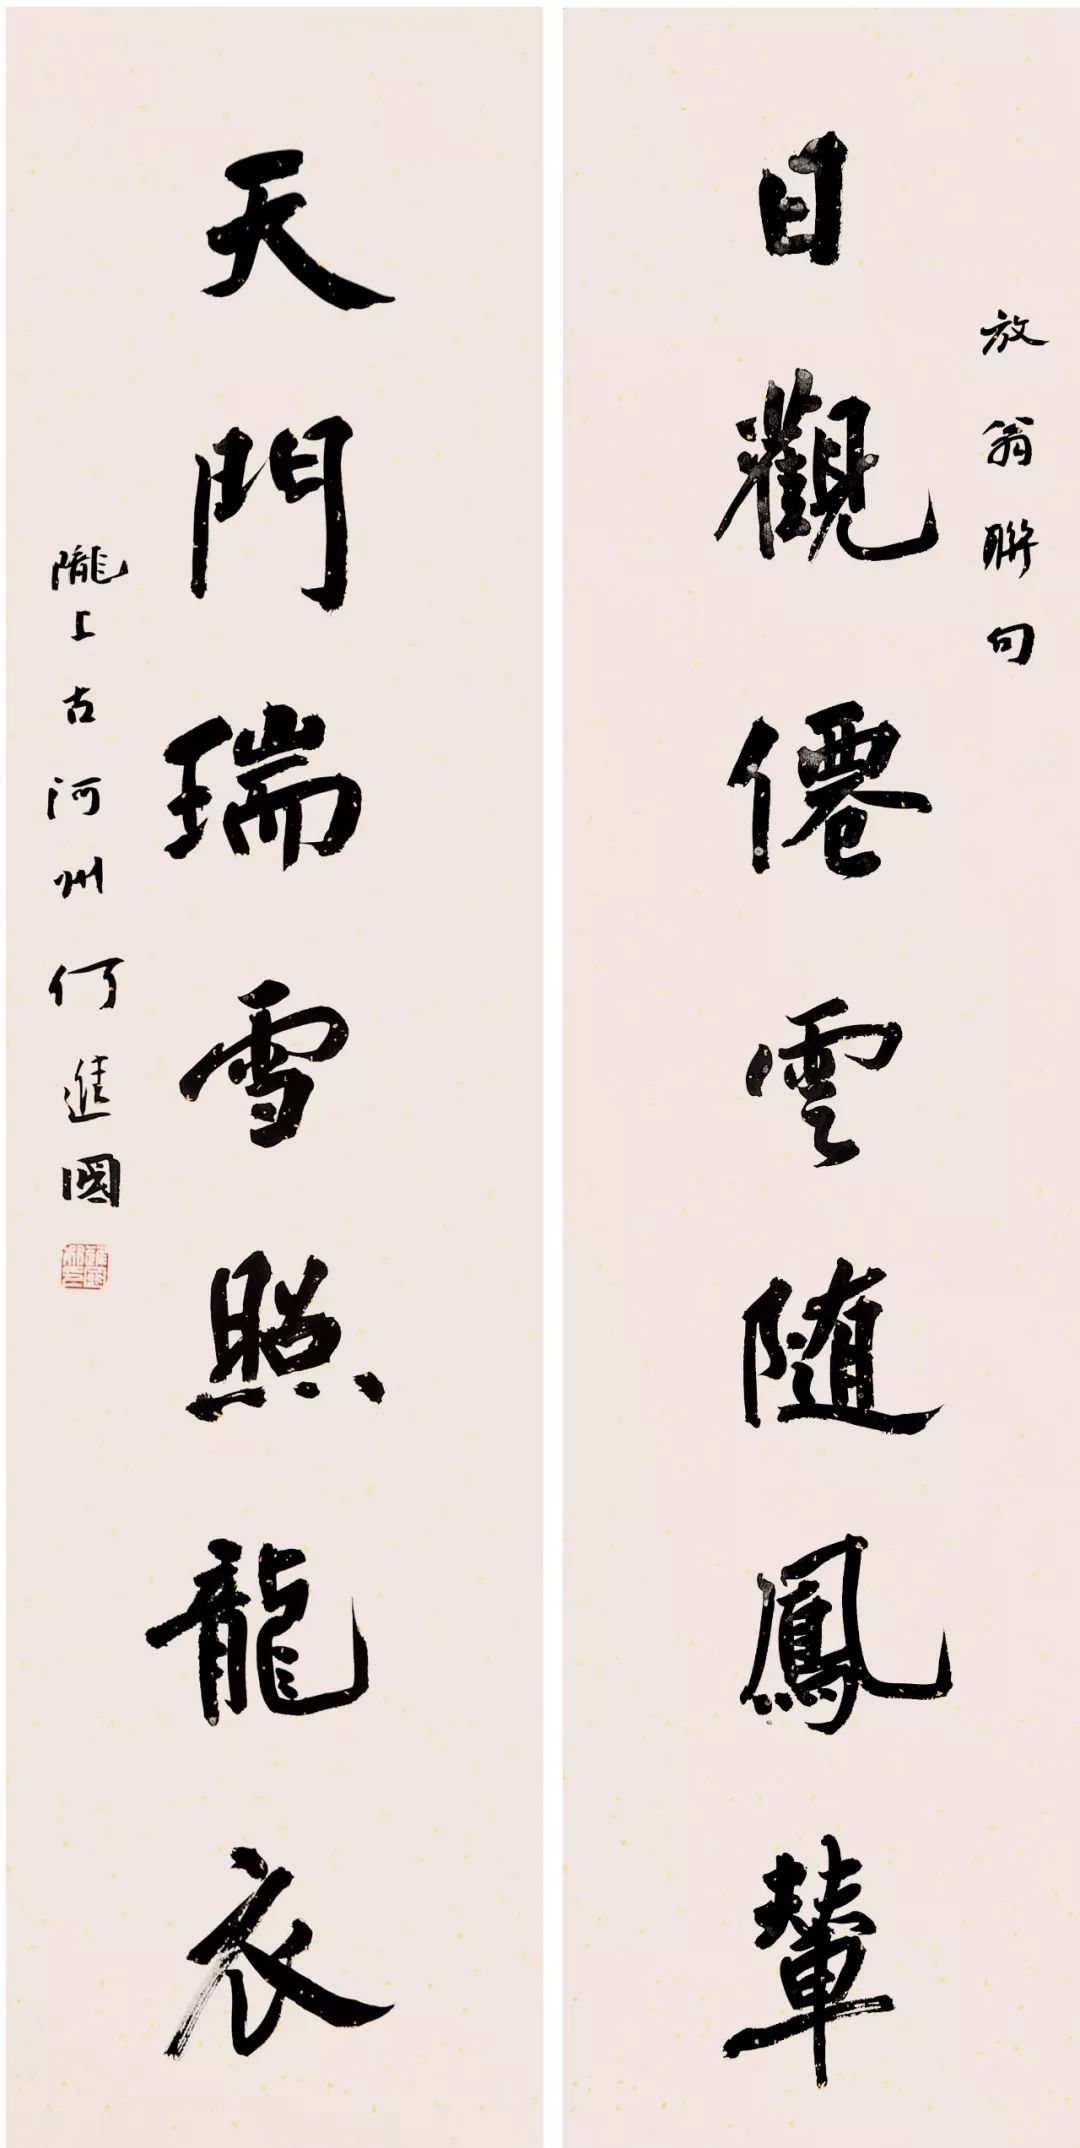 放翁聯句
日觀僊雲随鳳輦
天門瑞雪照龍衣
隴上古河州何進國